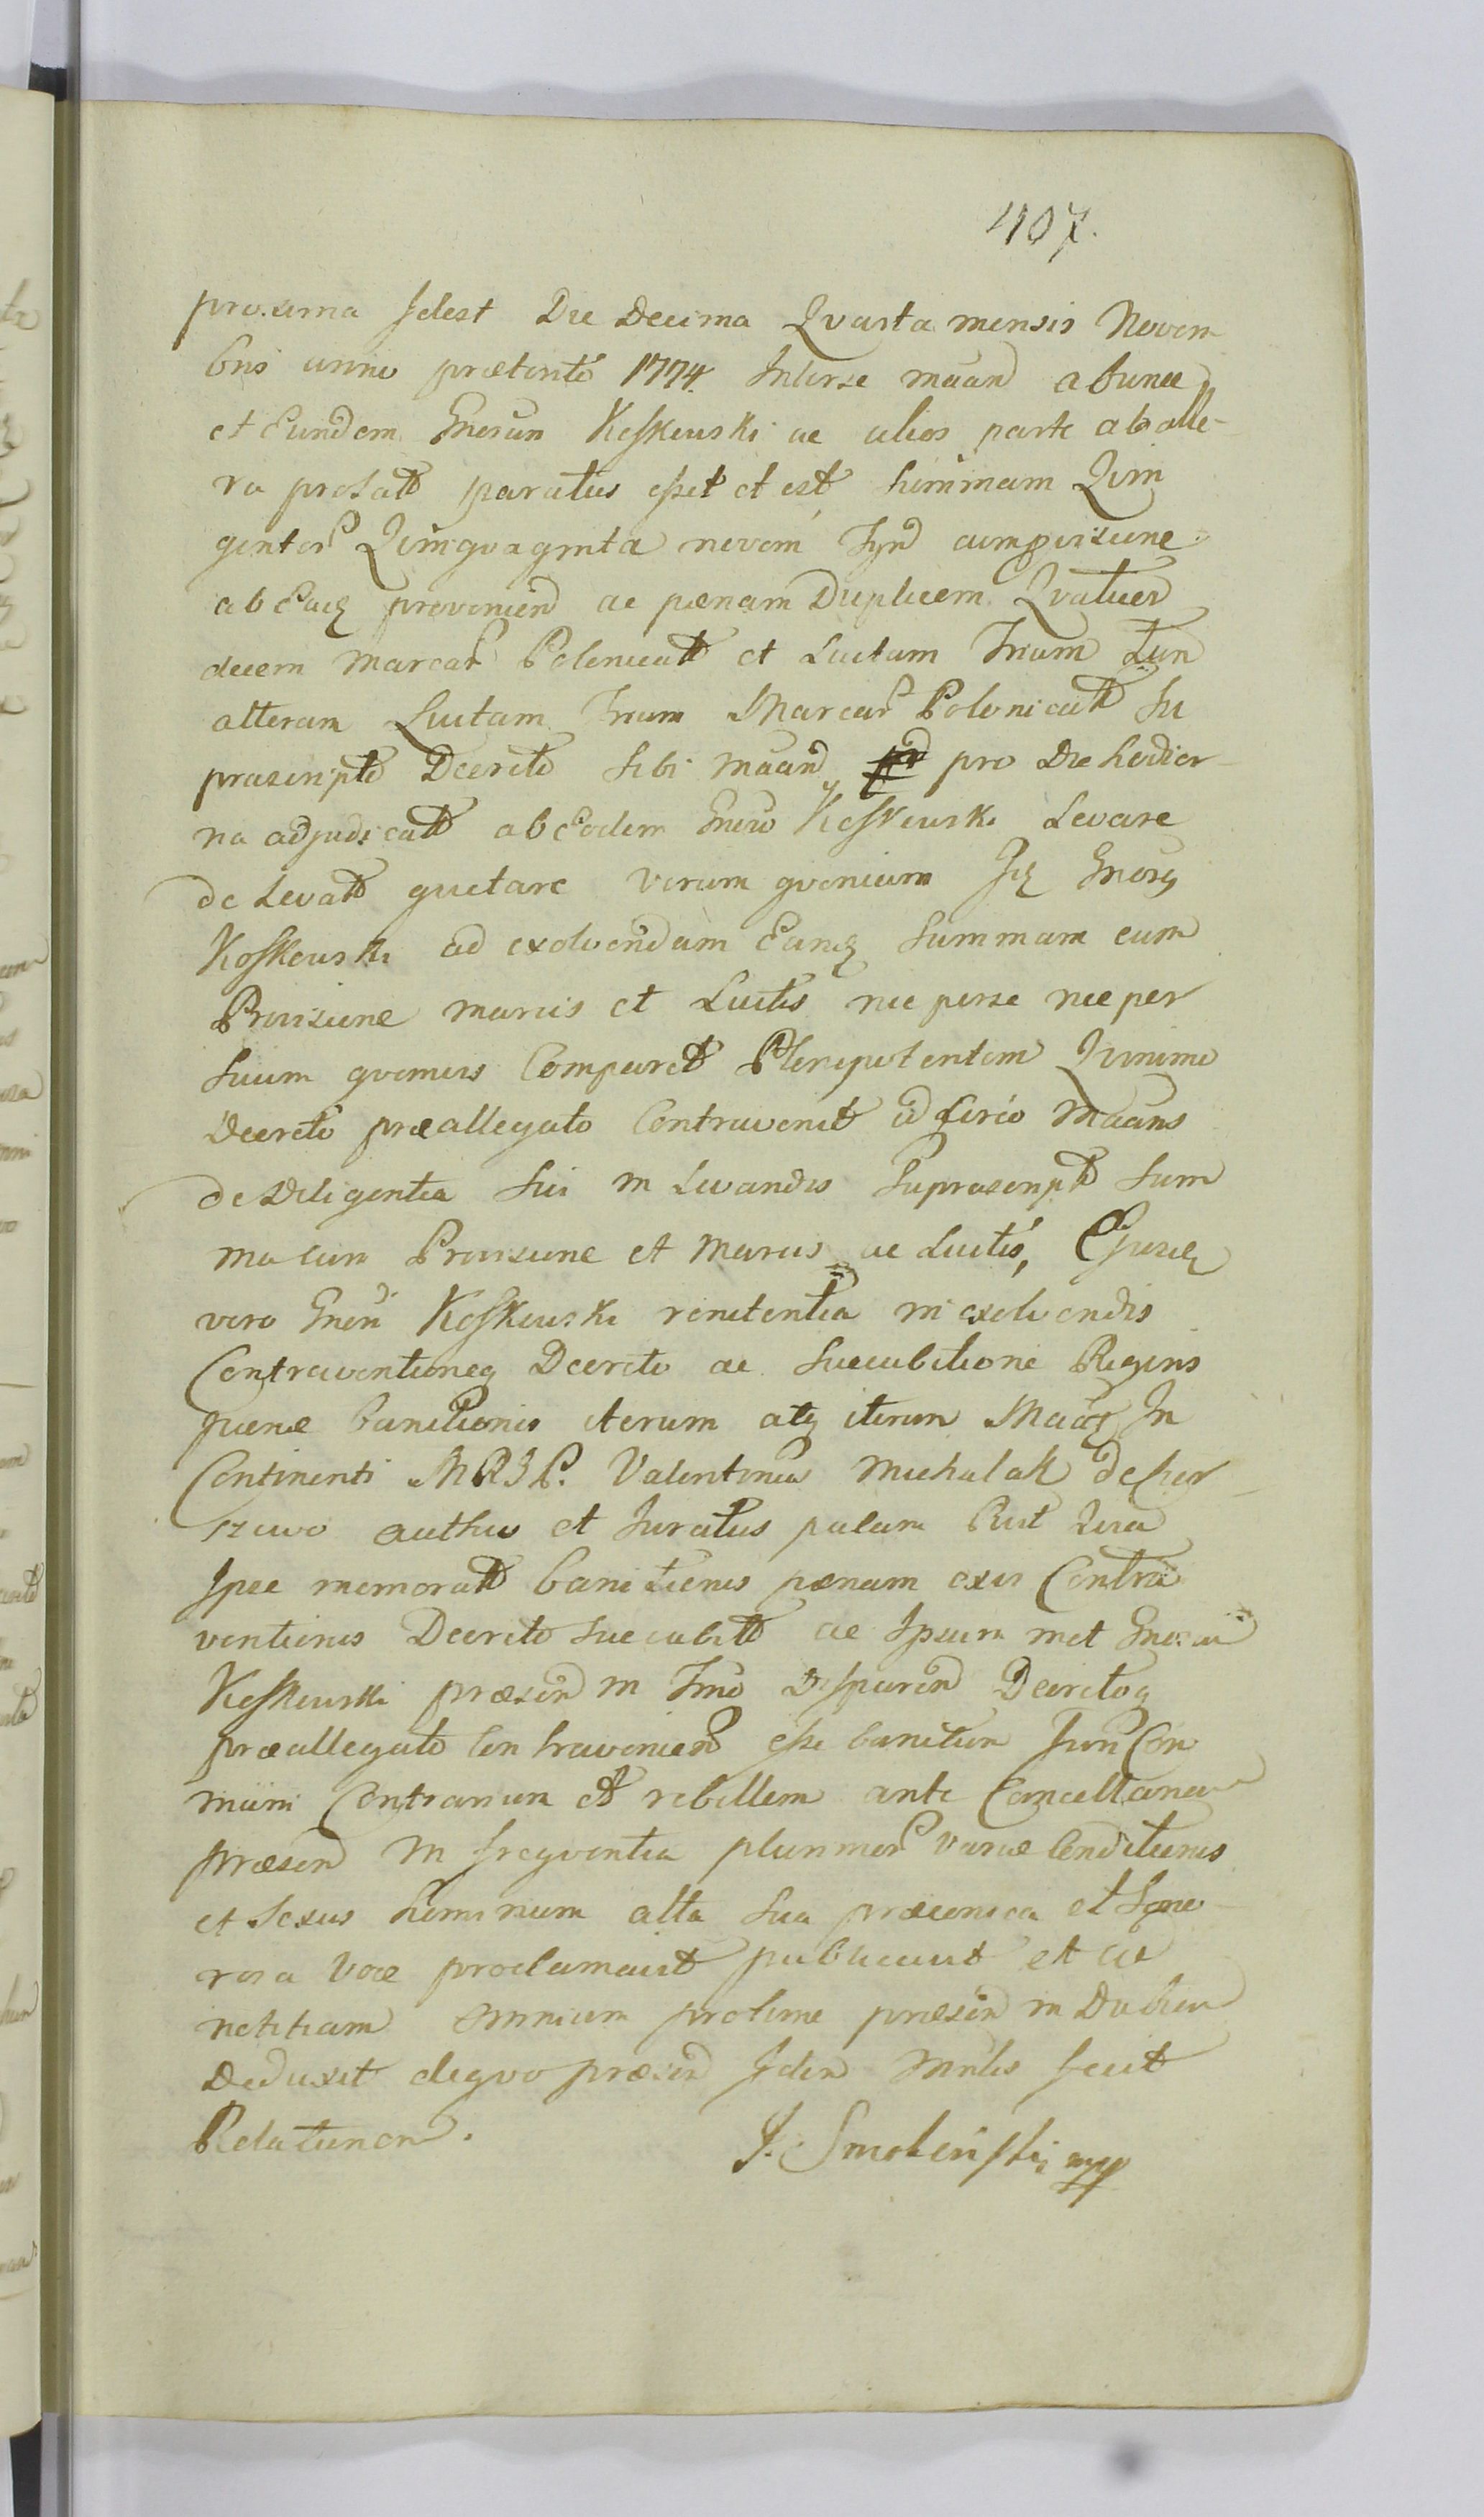 407.
proxima Idest Die Decima Qvarta mensis Novem
bris anno præterito 1774. Interse Maand ab una
et Eundem Gnosum Koskowski ac alios parte ab alte-
ra prolatt paratus esset et est summam Qvin
gentor Qvinqvaginta novem Tynf cum provisione
ab Eadq provenien ac pænam Duplicem Qvatuor
decem Marcar Polonicatt et Luitam Trium tum
alteram Luitam Trium Marcar Polonicatt su
prascripto Decreto sibi Maand pro Die hodier-
na adjudicatt ab Eodem Gnoso Koskowski Levare
de Levatt qvietare verum qvoniam Idq Gnosus
Koskowski ad exolvendam Eandq Summam cum
Provisione marcis et Luitis nec per se nec per
suum qvemvis Comparet Plenipotentem Qvinimo
Decreto præallegato Contravenit idcirco Maans
de Diligentia sui in Levandis suprascript Sum
ma cum Provisione et Marcis ac Luitis, Ejusdq
vero Gnosi Koskowski renitentia in exolvendis
Contraventioneq Decreto ac succubitione Regens
pænæ banitionis iterum atq iterum In
Continenti MRSP. Valentinus Michalak de
auth et Juratus palam
Ipse memoratt banitionis pænam exvi Contra
ventionis Decreto succubitt ac Ipsum met Gnosum
Koskowski præsen in Tmo Disparen Decretoq
præallegato Contravenien esse banitum Juri Com
muni Contrarium et rebellem ante Cancellariam
præsen in freqventia plurimor variæ Conditionis
et Sexus hominum alta sua præconica et Sono-
rosa voce proclamavit publicavit et ad
notitiam omnium protunc præsen in Dubiu
Deduxit deqvo præsen Idem Mnlis fecit
Relationem.
J. Smoleński mpp